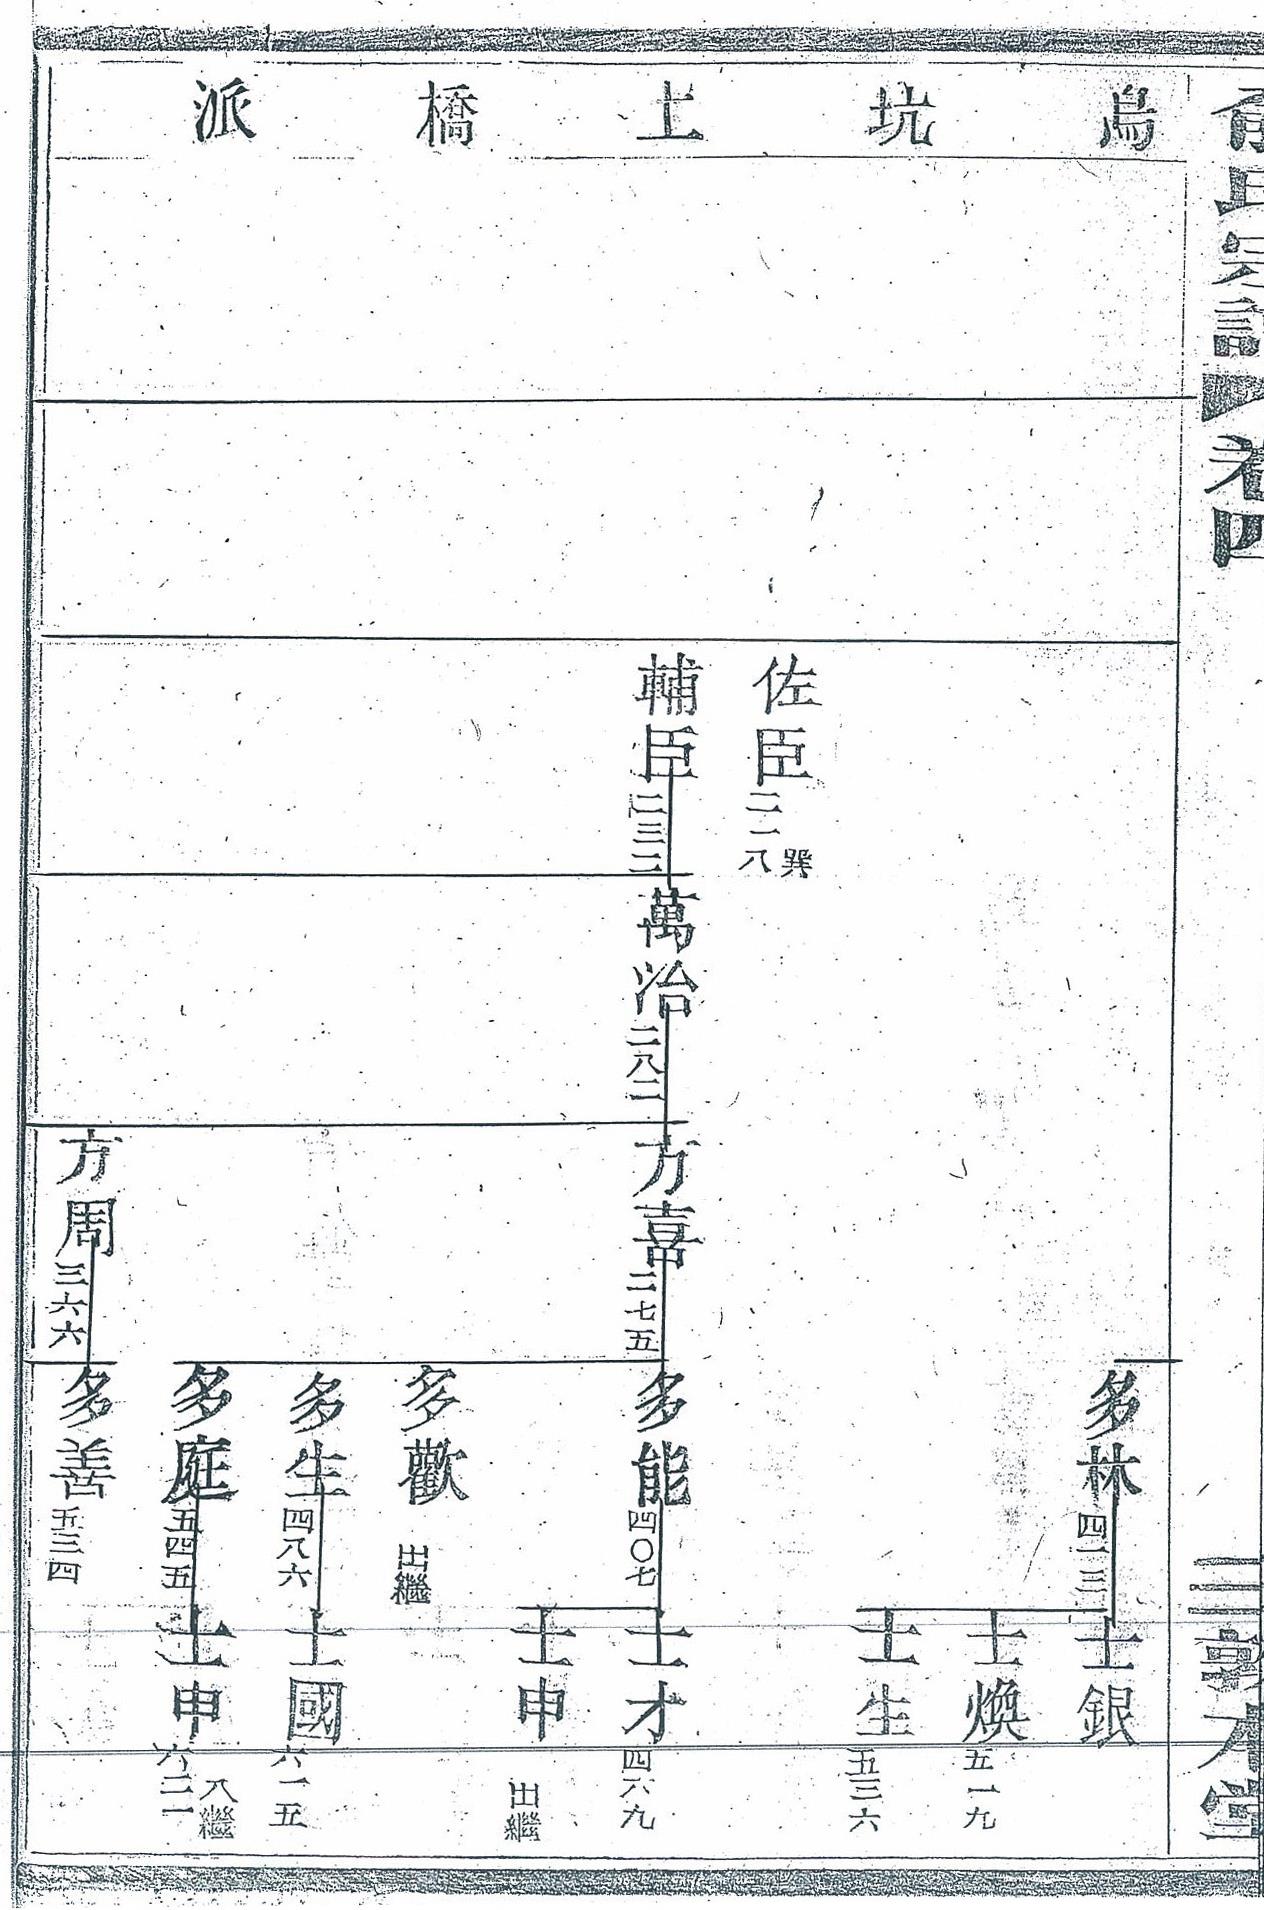 宗譜 卷四
三 敦本堂
烏坑上橋派
佐臣 二一八 巽
輔臣 二三二
萬治 二八二
方喜 二七五
方周 三六六
多林 四一三
多能 四〇七
多歡 出繼
多生 四八六
多庭 五四五
多善 五三四
士銀
士煥 五一九
士生 五三六
士才 四六九
士申 出繼
士國 六一五
士申 六二一 入繼